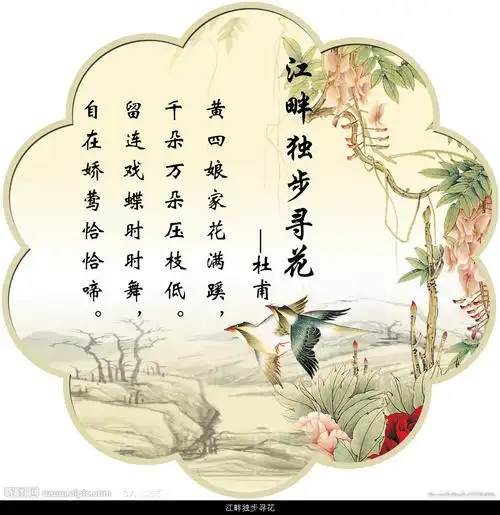 江畔独步寻花
—杜甫
黄四娘家花满蹊，
千朵万朵压枝低。
留连戏蝶时时舞，
自在娇莺恰恰啼。
昵图网 www.nipic.com
江畔独步寻花